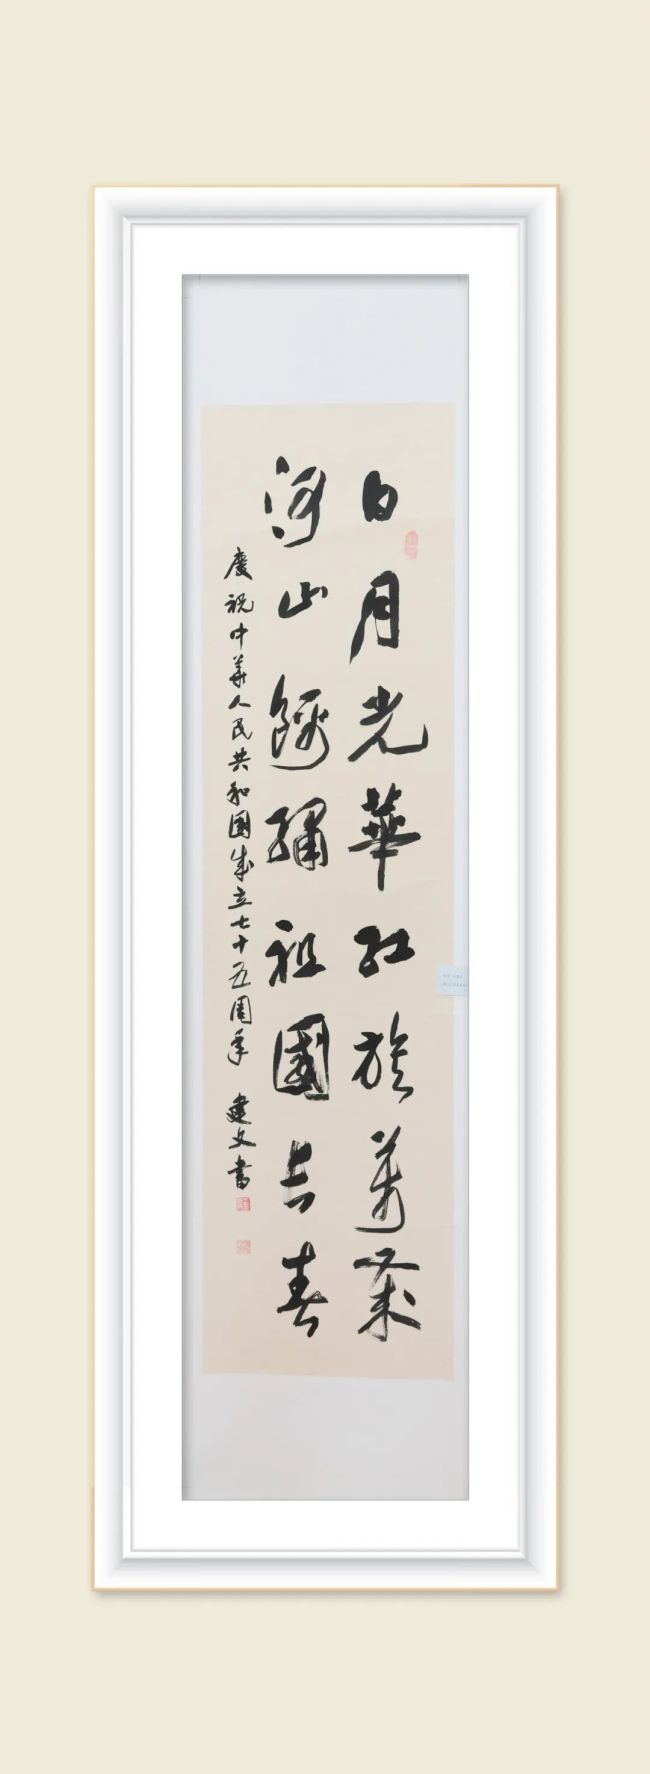 日月光華紅旗萬歲
河山錦繡祖國長春
慶祝中華人民共和國成立七十五周年 建文書